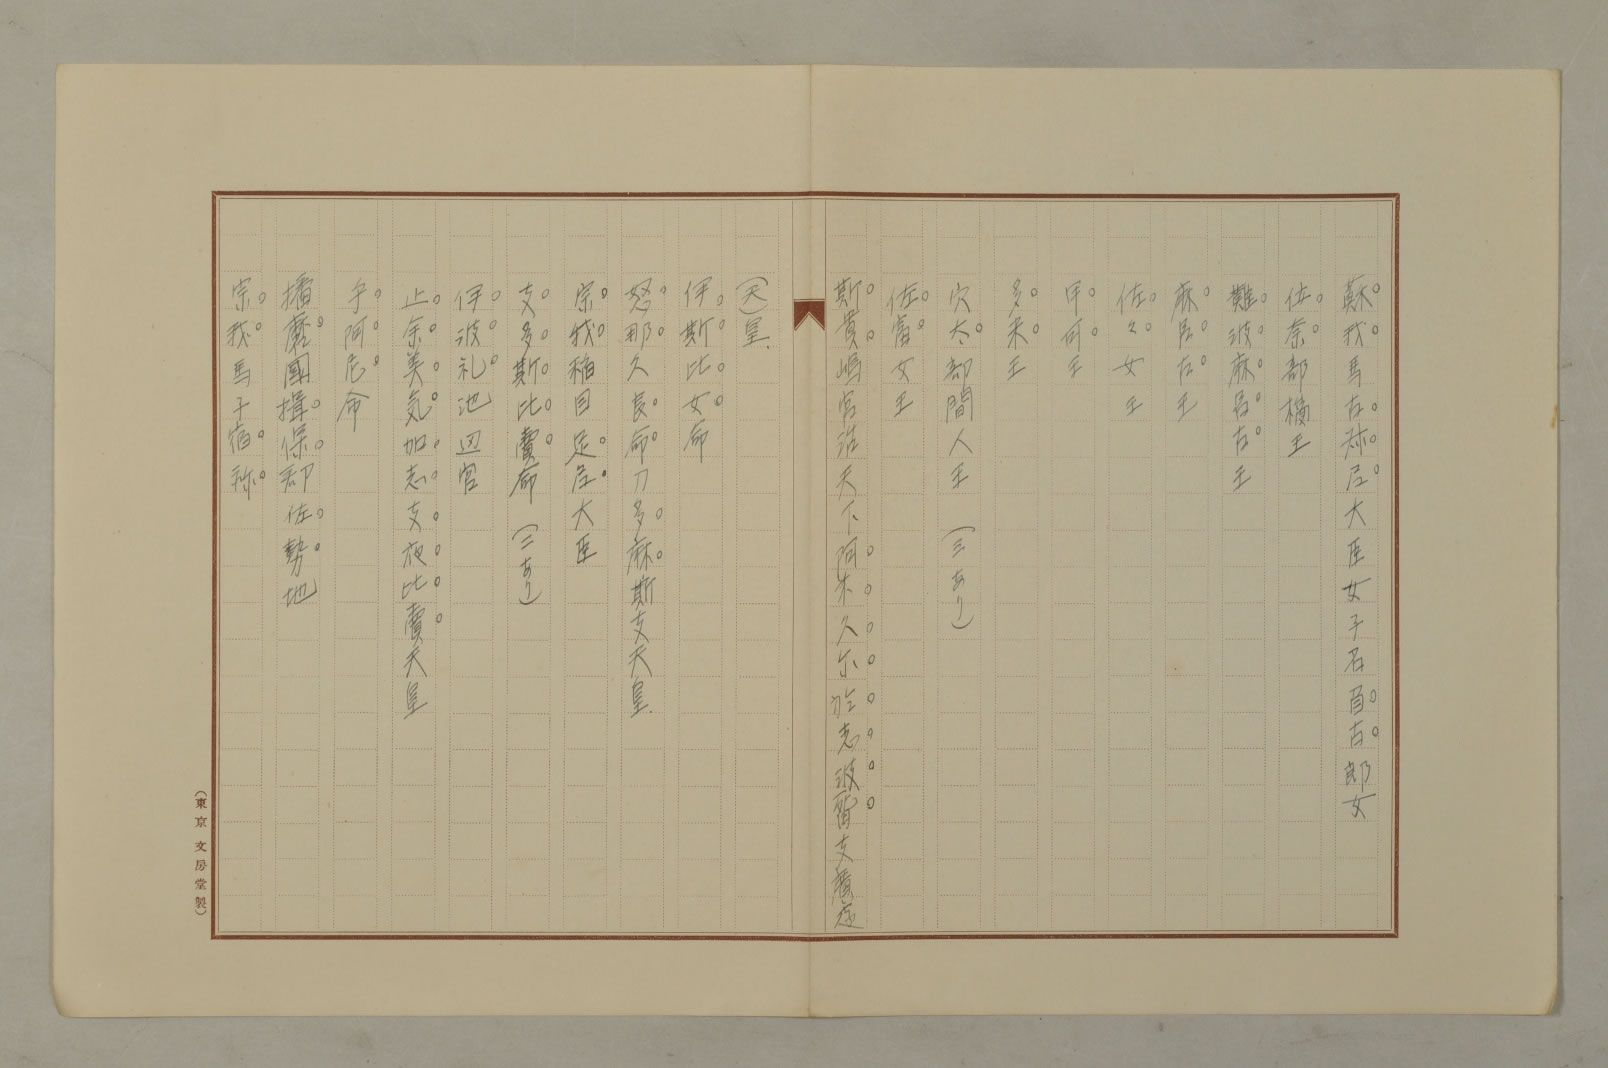 蘇我馬古祢𡰱大臣女子名𠮷古郎女
佐奈部橘王
難波麻呂古王
麻呂古王
佐久女王
甲可王
多米王
穴太部間人王　（三あり）
佐富女王
斯貴嶋宮治天下阿米久尓於志波留支廣庭
（天）皇．
伊斯比女命
怒那久良布刀多麻斯支天皇．
宗我稲目足𡰱大臣
支多斯比賣命　（二あり）
伊波礼池辺宮
止余美気加志支夜比賣天皇
乎阿尼命
播磨國揖保郡佐勢地
宗我馬子宿祢
（東京 文房堂製）